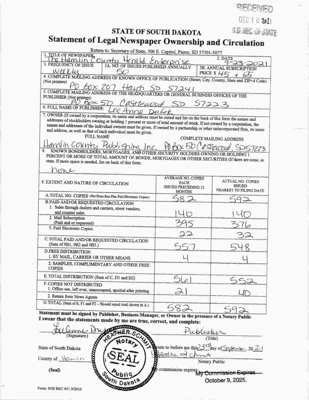 RECEIVED
DEC 10 2021
S.D. SEC. OF STATE
STATE OF SOUTH DAKOTA
Statement of Legal Newspaper Ownership and Circulation
Return to: Secretary of State, 500 E. Capitol, Pierre, SD 57501-5077
1. TITLE OF NEWSPAPER
The Hamlin County Herald Enterprise
2. DATE
9-23-2021
3. FREQUENCY OF ISSUE
weekly
3A. NO. OF ISSUES PUBLISHED ANNUALLY
50
3B. ANNUAL SUBSCRIPTION
PRICE $ 45, $ 65
4. COMPLETE MAILING ADDRESS OF KNOWN OFFICE OF PUBLICATION (Street, City, County, State and ZIP+4 Code)
(Not printers)
PO Box 207 Hayti SD 57241
5. COMPLETE MAILING ADDRESS OF THE HEADQUARTERS OR GENERAL BUSINESS OFFICES OF THE
PUBLISHER (Not printers)
PO Box 50 Castlewood SD 57223
6. FULL NAME OF PUBLISHER:
7. OWNER (If owned by a corporation, its name and address must be stated and list on the back of this form the names and
addresses of stockholders owning or holding 1 percent or more of total amount of stock. If not owned by a corporation, the
names and addresses of the individual owners must be given. If owned by a partnership or other unincorporated firm, its name
and address, as well as that of each individual must be given.
FULL NAME
COMPLETE MAILING ADDRESS
Hamlin County Publishing Inc. PO Box 50 Castlewood SD 57223
8. KNOWN BONDHOLDERS, MORTGAGEES, AND OTHER SECURITY HOLDERS OWNING OR HOLDING 1
PERCENT OR MORE OF TOTAL AMOUNT OF BONDS, MORTGAGES OR OTHER SECURITIES (If there are none, so
state. If more space is needed, list on back of this form.
None
9. EXTENT AND NATURE OF CIRCULATION
AVERAGE NO. COPIES EACH ISSUED PRECEDING 12 MONTHS
ACTUAL NO. COPIES ISSUED NEAREST TO FILING DATE
A. TOTAL NO. COPIES
582 592
B. PAID AND/OR REQUESTED CIRCULATION
1. Sales through dealers and carriers, street vendors,
and counter sales.
140 140
2. Mail Subscription
(Paid and or requested)
395 376
3. Paid Electronic Copies
22 32
C. TOTAL PAID AND/OR REQUESTED CIRCULATION
(Sum of 9B1, 9B2 and 9B3.)
557 548
D. FREE DISTRIBUTION
1. BY MAIL, CARRIER OR OTHER MEANS
4 4
2. SAMPLES, COMPLIMENTARY AND OTHER FREE
COPIES
E. TOTAL DISTRIBUTION (Sum of C, D1 and D2)
561 552
F. COPIES NOT DISTRIBUTED
1. Office use, left over, unaccounted, spoiled after printing
21 40
2. Return from News Agents
G. TOTAL (Sum of E, F1 and F2 - Should equal total shown in A.)
582 592
Statement must be signed by Publisher, Business Manager, or Owner in the presence of a Notary Public
I swear that the statements made by me are true, correct, and complete:
Publisher
(Signature)
(Title)
State of South Dakota
County of Hamlin
HEATHER SCHMIT
Notary
SEAL
Public
South Dakota
September, 2021
Notary Public
(Seal)
My Commission Expires
October 9, 2025.